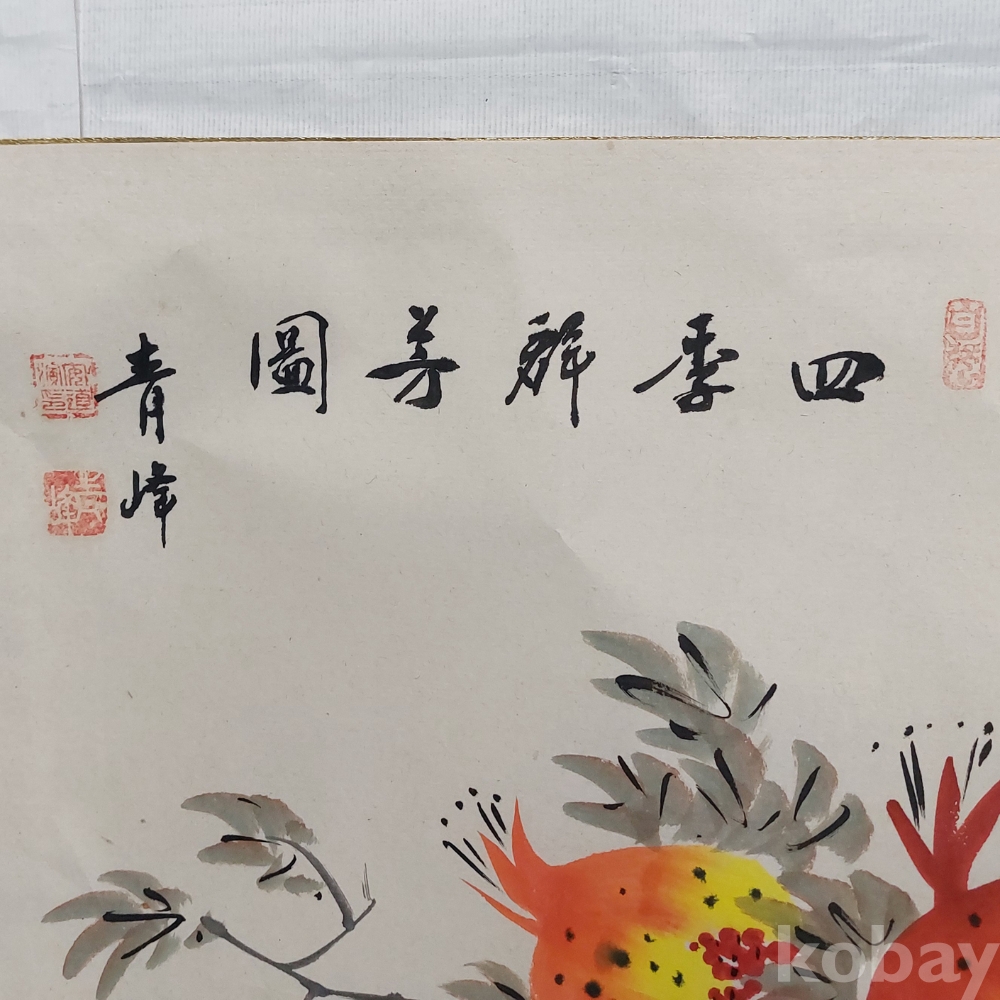 四季群芳圖
青峰
青峰
kobay